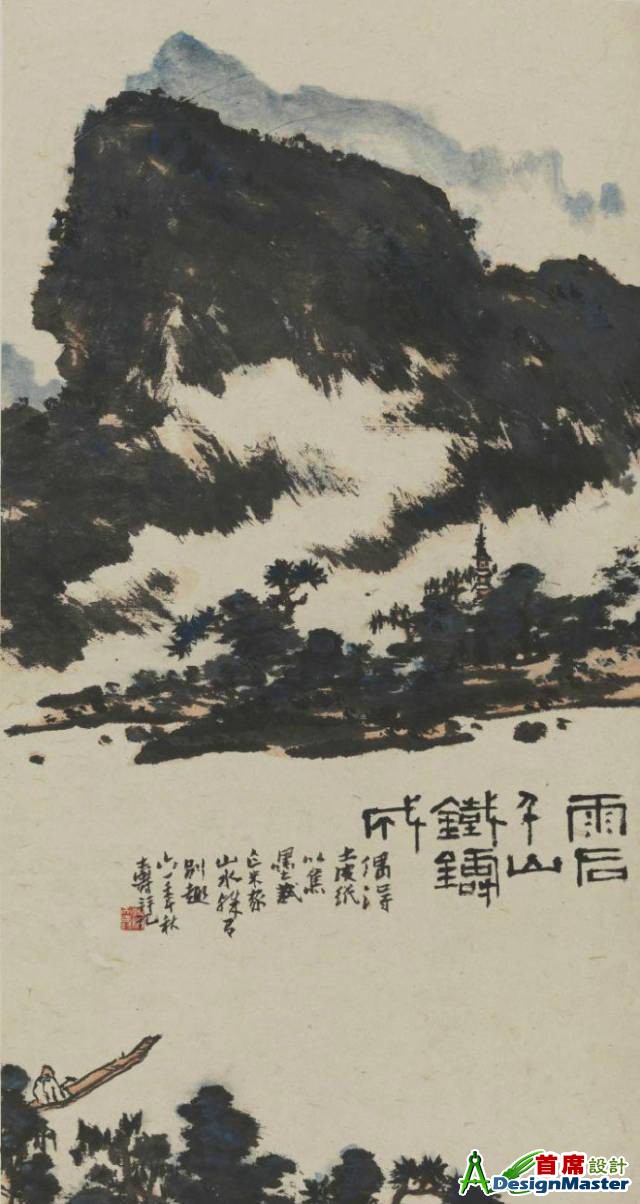 雨后
千山
鐵鑄
成
偶得
土皮紙
以焦
墨
米家
山水殊有
別趣
六一年秋
壽
首席設計
ADesignMaster